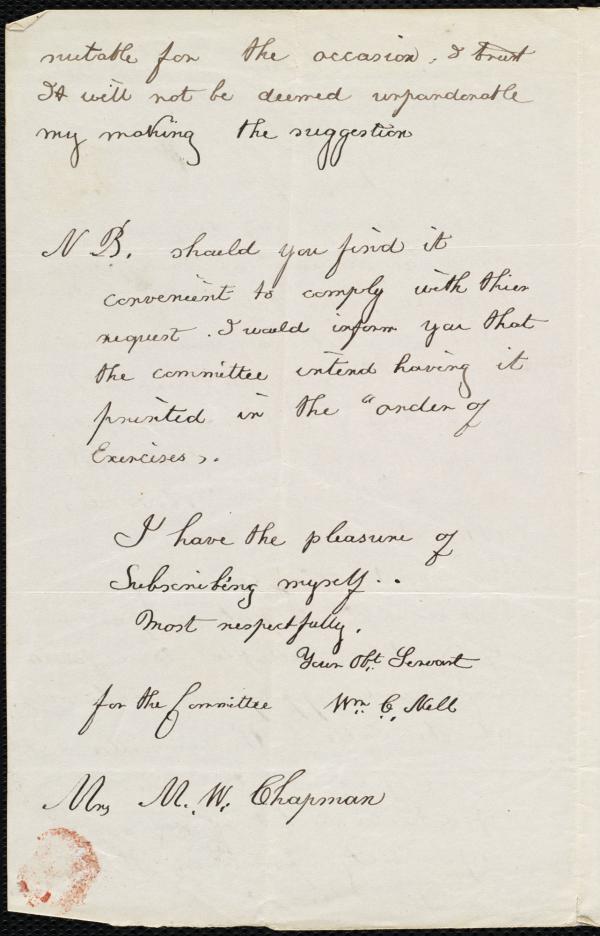 suitable for the occasion, I trust
It will not be deemed unpardonable
my making the suggestion
N B. should you find it
convenient to comply with this
request. I would inform you that
the committee intend having it
printed in the "order of
Exercises".
I have the pleasure of
Subscribing myself..
Most respectfully,
Your Obt. Servant
for the Committee Wm. C. Nell
Mrs M. W. Chapman